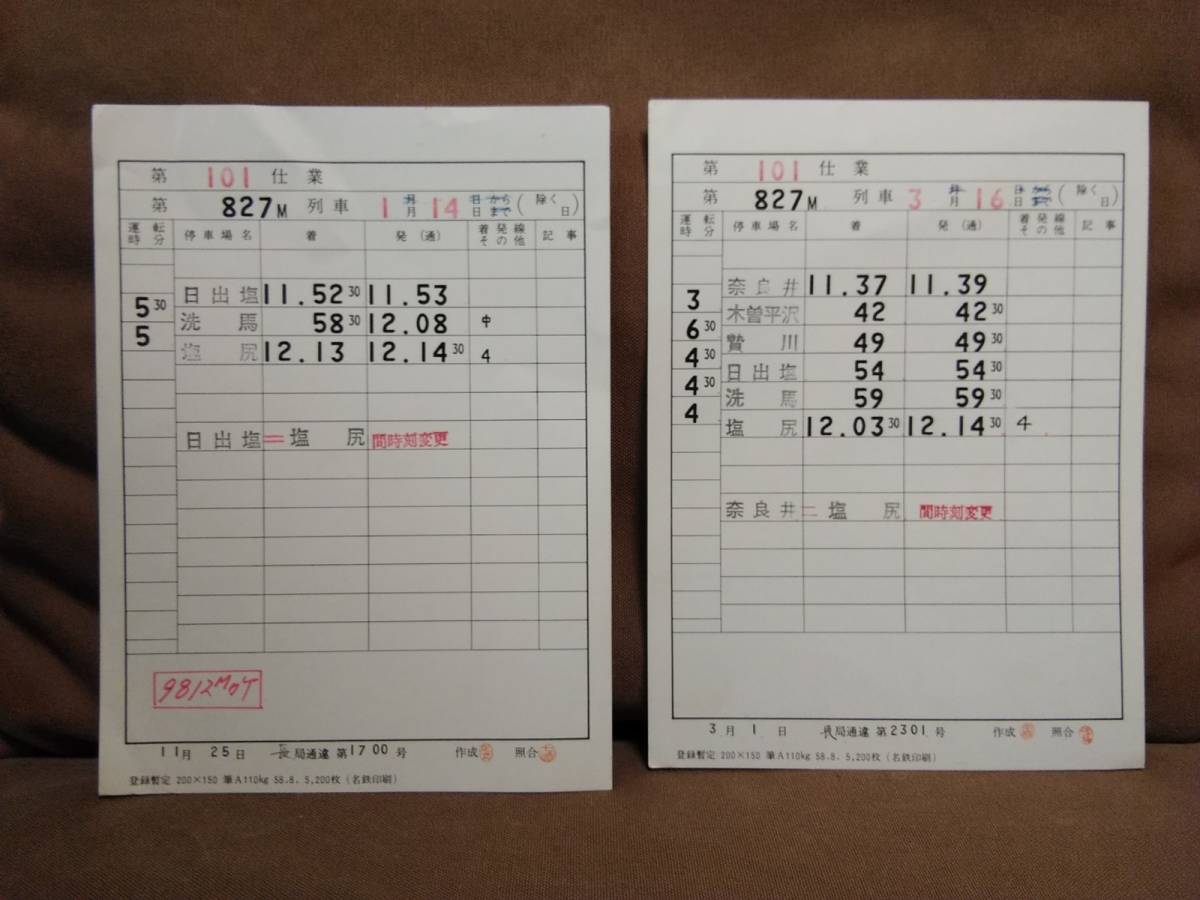 第 101 仕業
第 827M 列車 1月14日 から まで ( 除く 日)
運転時分 停車場名 着 発(通) 着発線その他 記事
日出塩 11.52 30 11.53
5 30
洗馬 58 30 12.08 中
5
塩尻 12.13 12.14 30 4
日出塩=塩尻 間時刻変更
9812MのT
11月25日 長局通達第1700号 作成 照合
登録暫定 200×150 筆A110kg 58.8. 5,200枚(名鉄印刷)
第 101 仕業
第 827M 列車 3月16日 から まで ( 除く 日)
運転時分 停車場名 着 発(通) 着発線その他 記事
奈良井 11.37 11.39
3
木曽平沢 42 42 30
6 30
贄川 49 49 30
4 30
日出塩 54 54 30
4 30
洗馬 59 59 30
4
塩尻 12.03 30 12.14 30 4
奈良井=塩尻 間時刻変更
3月1日 長局通達第2301号 作成 照合
登録暫定 200×150 筆A110kg 58.8. 5,200枚(名鉄印刷)